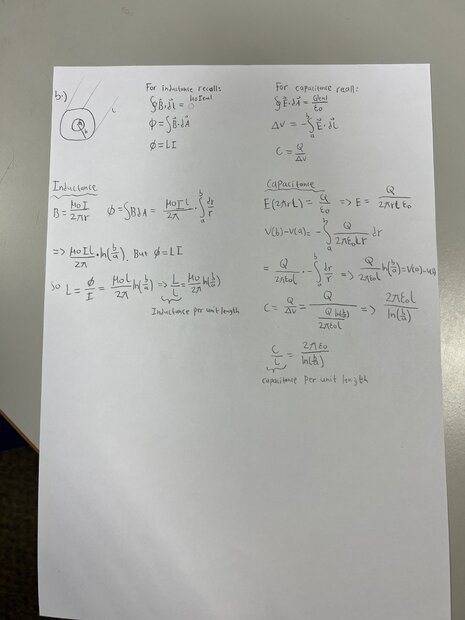 b.)
For inductance recall:
∮B⃗·dl⃗ = μ0Ienl
Φ = ∫B⃗·dA⃗
Φ = LI
For capacitance recall:
∮E⃗·dA⃗ = Qenl/ε0
ΔV = -∫_a^b E⃗·dl⃗
C = Q/ΔV
Inductance
B = μ0I/2πr    Φ = ∫BdA = μ0Il/2π · ∫_a^b dr/r
=> μ0Il/2π · ln(b/a), But Φ = LI
so L = Φ/I = μ0l/2π ln(b/a) => L/l = μ0/2π ln(b/a)
Inductance per unit length
Capacitance
E(2πrL) = Q/ε0 => E = Q/2πrLε0
V(b)-V(a) = -∫_a^b Q/2πε0Lr dr
= Q/2πε0L · -∫_a^b dr/r => Q/2πε0L ln(b/a) = V(a)-V(b)
C = Q/ΔV = Q/(Q ln(b/a)/2πε0L) => 2πε0L/ln(b/a)
C/L = 2πε0/ln(b/a)
capacitance per unit length